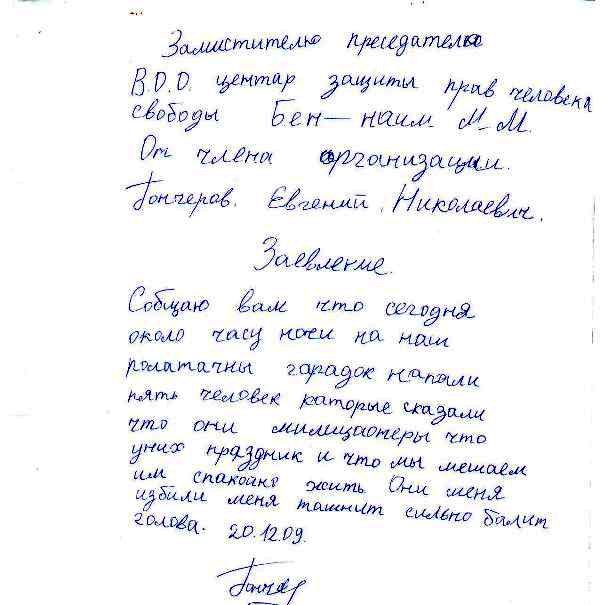 Замистителю преседателю
В.О.О. центар защиты прав человека
свободы Бен-наим М.М.
От члена организации.
Гончеров. Евгений. Николаевич.
Заевление.
Собщаю вам что сегодня
около часу ночи на наш
ролатачны гарадок напали
пять человек каторые сказали
что они милицаонеры что
уних праздник и что мы мешаем
им спакойно жить Они меня
избили меня ташнит сильно балит
голова. 20.12.09.